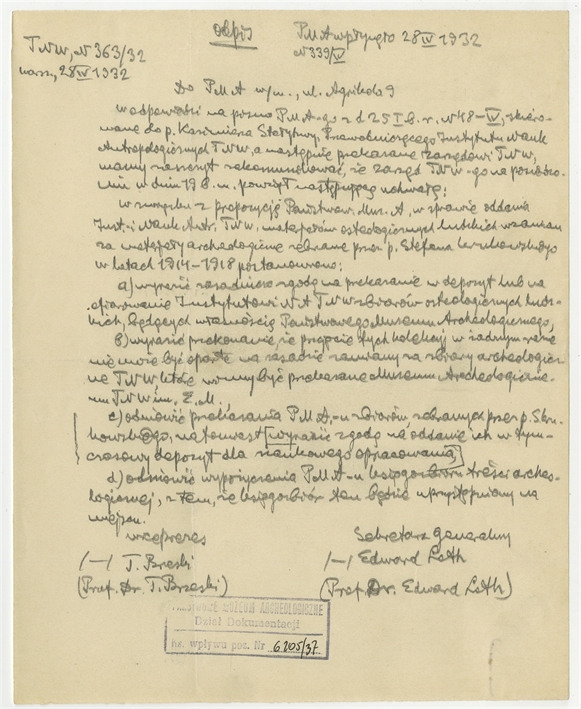 odpis
P.M.A wpłynęło 28 IV 1932
N 339/IV
TNW, N 363/32
warsz, 28 IV 1932
Do P.M.A w/m., ul. Agrikola 9
w odpowiedzi na pismo P.M.A-go z d 25 I b. r. N 48-IV, skiero-
wane do p. Kazimierza Stołyhwy, Przewodniczącego Instytutu Nauk
Antropologicznych TNW, a następnie przekazane Zarządowi TNW,
mamy zaszczyt zakomunikować, że zarząd TNW-go na posiedze-
niu w dniu 19 b. m. powziął następującą uchwałę:
w związku z propozycją Państwow. Muz. A, w sprawie oddania
Inst-i Nauk Antr. TNW, materjałów osteologicznych ludzkich wzamian
za materjały archeologiczne zebrane przez p. Stefana Krukowskiego
w latach 1914-1918 postanowiono:
a) wyrazić zasadniczo zgodę na przekazanie w depozyt lub na
ofiarowanie Instytutowi N.A TNW zbiorów osteologicznych ludz-
kich, będących własnością Państwowego Muzeum Archeologicznego,
b) wyrazić przekonanie, że propozycja tych kolekcji w żadnym razie
nie może być oparta na zasadzie zamiany na zbiory archeologicz-
ne TNW, które winny być przekazane Muzeum Archeologiczne-
mu TNW im. E. M.,
c) odmówić przekazania P.M.A,-u zbiorów, zebranych przez p. Kru-
kowskiego, natomiast [wyrazić zgodę na oddanie ich w tym-
czasowy depozyt dla naukowego opracowania,]
d) odmówić wypożyczenia P.M.A-u księgozbioru treści arche-
ologicznej, z tem, że księgozbiór ten będzie uprzystępniony na
miejscu.
wiceprezes
Sekretarz Generalny
/-/ T. Brzeski
/-/ Edward Loth
(Prof. Dr. T. Brzeski)
(Prof. Dr. Edward Loth)
PAŃSTWOWE MUZEUM ARCHEOLOGICZNE
Dział Dokumentacji
nr. wpływu poz. Nr 6205/37